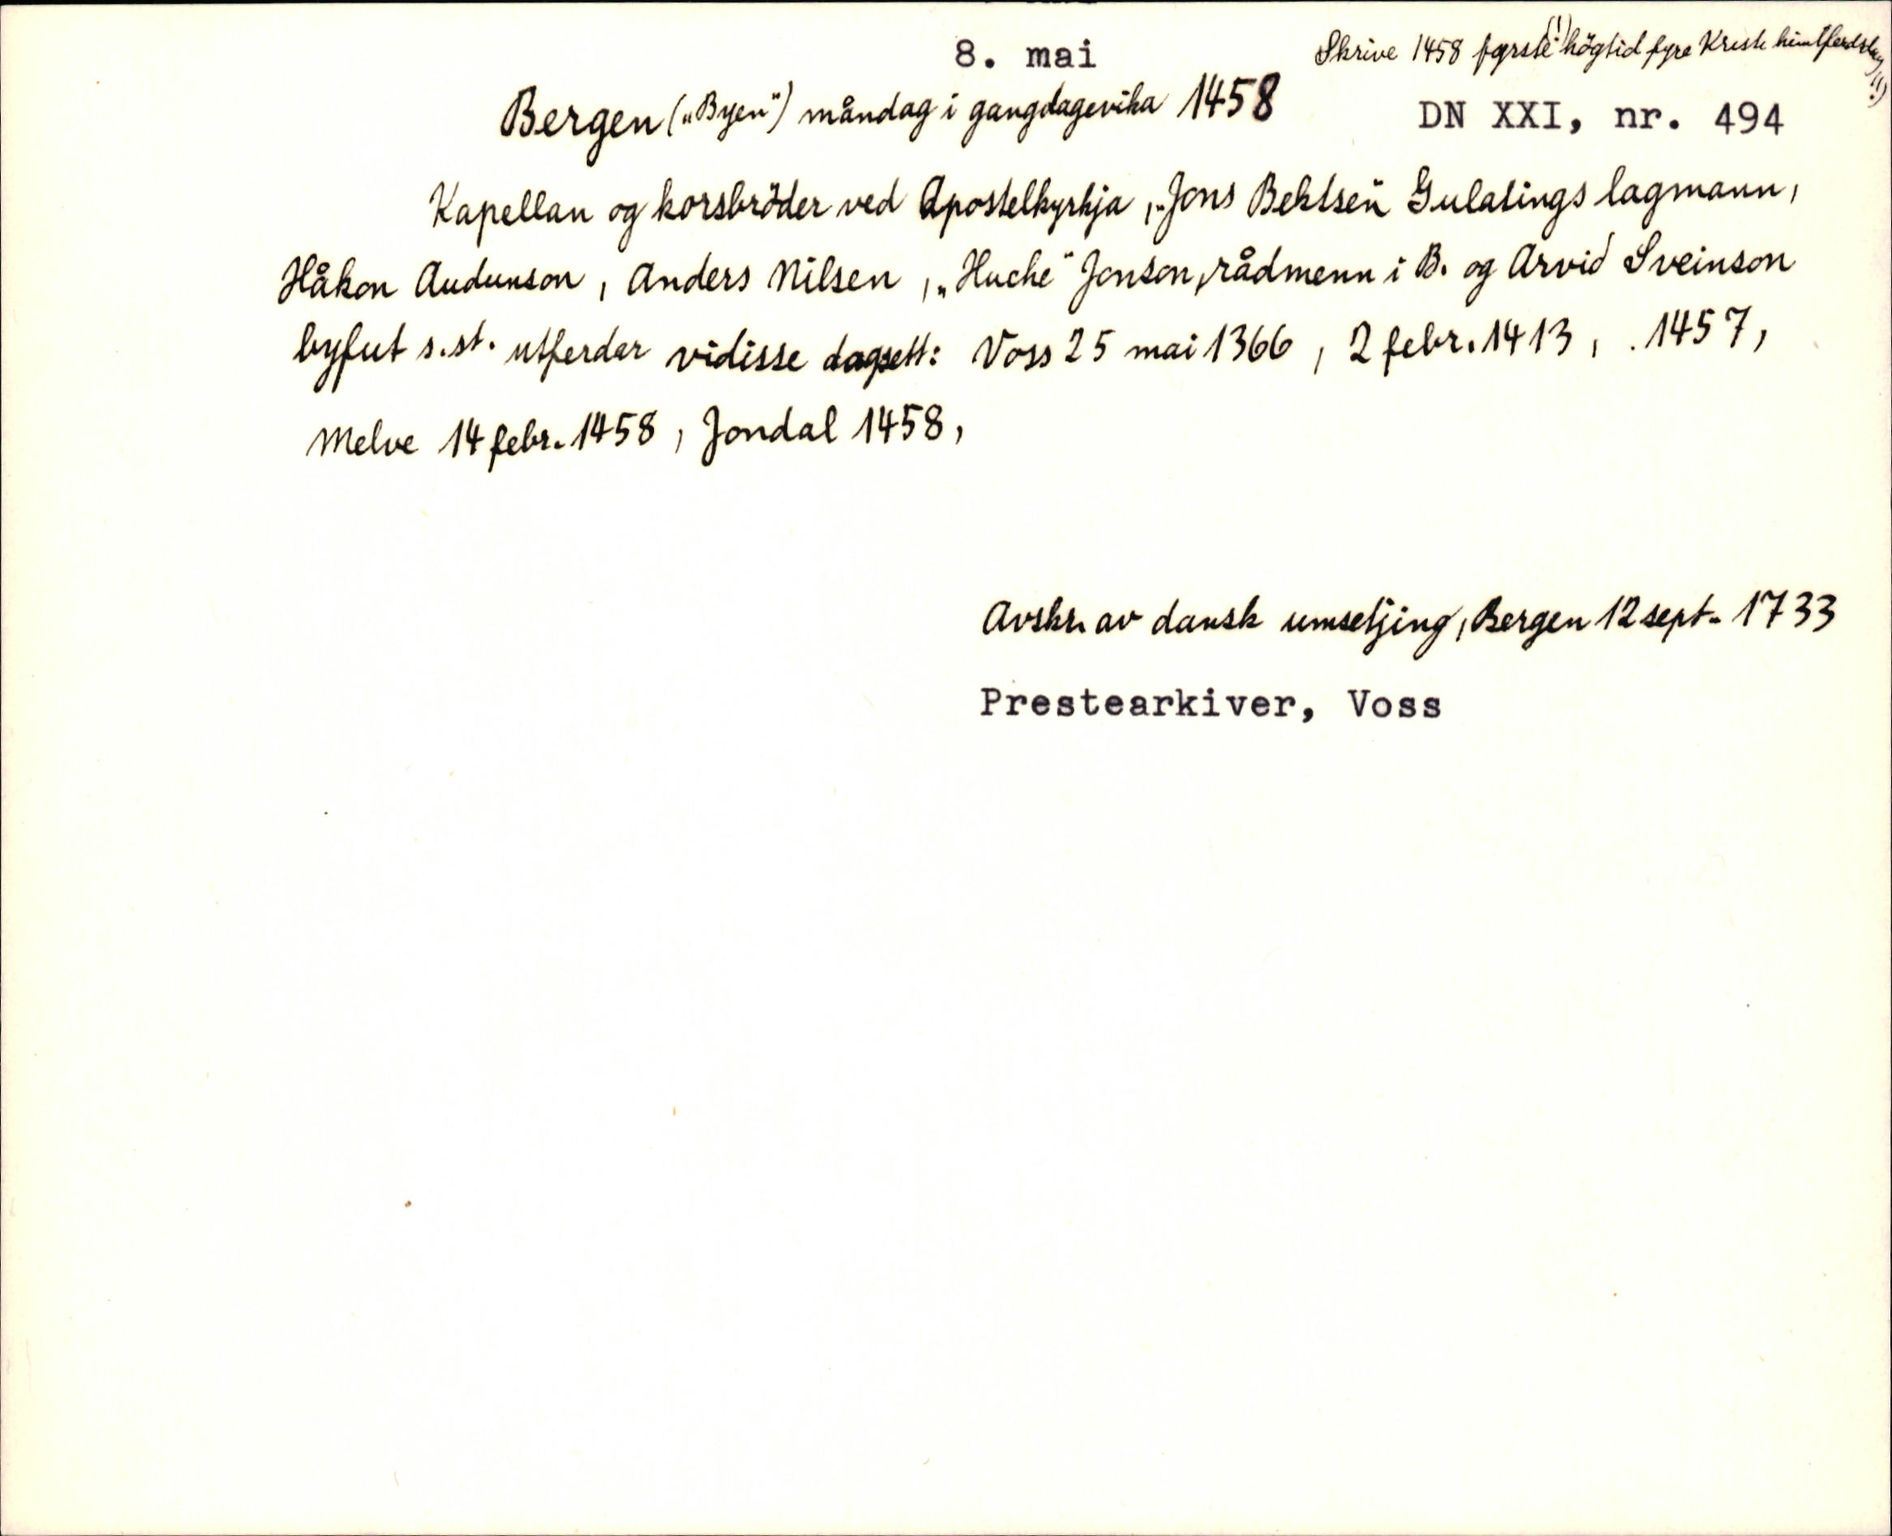 8. mai
Skrive 1458 fyrste (!) högtid fyre Kristi himlferdsdag (!)
Bergen („Byen") måndag i gangdagevika 1458
DN XXI, nr. 494
Kapellan og korsbröder ved Apostelkyrkja, „Jons Bektsen" Gulatings lagmann,
Håkon Audunson, Anders Nilsen, „Huche" Jonson, rådmenn i B. og Arvid Sveinson
byfut s.st. utferdar vidisse dagsett: Voss 25 mai 1366, 2 febr. 1413, . 1457,
Melve 14 febr. 1458, Jondal 1458,
Avskr. av dansk umsetjing, Bergen 12 sept. 1733
Prestearkiver, Voss